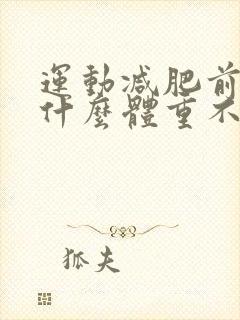 運動減肥前
什麼體重不
狐夫